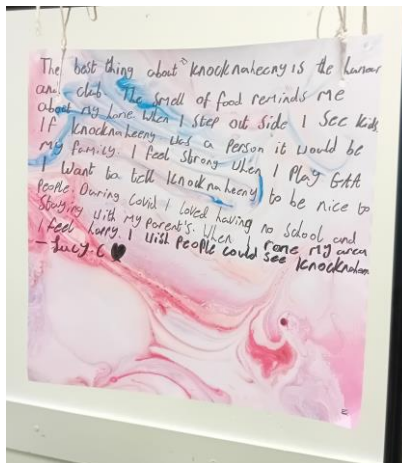 The best thing about Knocknaheeny is the humour
and club The smell of food reminds me
about my home when I step out side I see kids.
If Knocknaheeny was a person it would be
my family. I feel strong when I play GAA
I want to tell Knocknaheeny to be nice to
people. During Covid I loved having no school and
staying with my parent's. When I my area
I feel happy. I wish people could see
- Lucy.C ♥